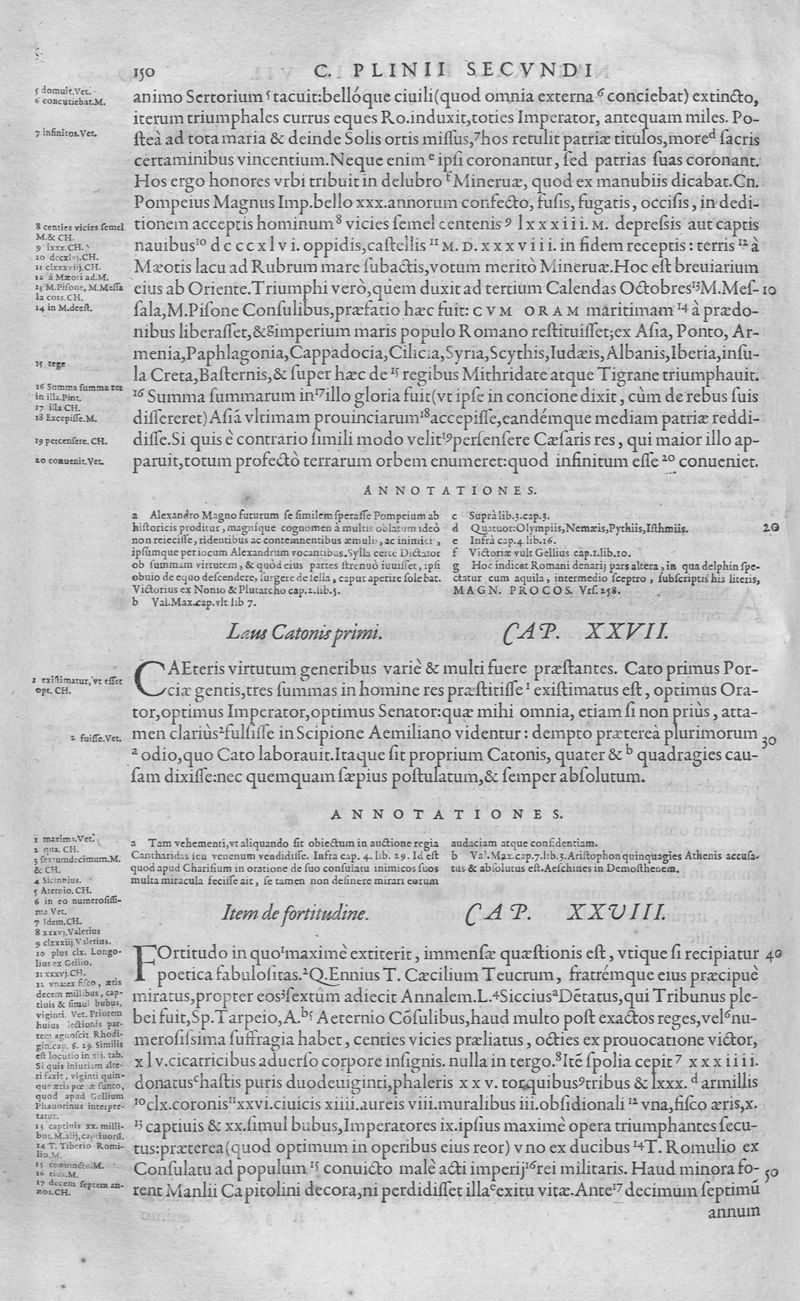 150
C. PLINII SECVNDI
5 domuit.Vet.
6 concutiebat.M.
7 infinitos.Vet.
8 centies vicies semel
M.& CH.
9 lxxx.CH.
10 dccxlvj.CH.
11 clxxxviij.CH.
12 à Mæoti ad.M.
13 M.Pisone, M.Messa
la coss.CH.
14 in M.deest.
15 rege
16 Summa summa rea
in illa.Pint.
17 illa CH.
18 Excepisse.M.
19 percensere. CH.
20 conuenit.Vet.
animo Sertorium⁵ tacuit:bellóque ciuili(quod omnia externa ⁶ conciebat) extincto,
iterum triumphales currus eques Ro.induxit,toties Imperator, antequam miles. Po-
steà ad tota maria & deinde Solis ortis missus,⁷hos retulit patriæ titulos,moreᵈ sacris
certaminibus vincentium.Neque enim ᵉ ipsi coronantur, sed patrias suas coronant.
Hos ergo honores vrbi tribuit in delubro ᶠ Mineruæ, quod ex manubiis dicabat.Cn.
Pompeius Magnus Imp.bello xxx.annorum confecto, fusis, fugatis, occisis, in dedi-
tionem acceptis hominum⁸ vicies semel centenis ⁹ lxxxiii. M. depressis aut captis
nauibus¹⁰ dcccxlvi. oppidis,castellis ¹¹ M. D. xxxviii. in fidem receptis : terris ¹² à
Mæotis lacu ad Rubrum mare subactis,votum meritò Mineruæ.Hoc est breuiarium
eius ab Oriente.Triumphi verò,quem duxit ad tertium Calendas Octobres¹³M.Mes- 10
sala,M.Pisone Consulibus,præfatio hæc fuit: CVM ORAM maritimam ¹⁴ à prædo-
nibus liberasset,&ᵍimperium maris populo Romano restituisset;ex Asia, Ponto, Ar-
menia,Paphlagonia,Cappadocia,Cilicia,Syria,Scythis,Iudæis,Albanis,Iberia,insu-
la Creta,Basternis,& super hæc de ¹⁵ regibus Mithridate atque Tigrane triumphauit.
¹⁶ Summa summarum in¹⁷illo gloria fuit(vt ipse in concione dixit, cùm de rebus suis
dissereret) Asiā vltimam prouinciarum¹⁸accepisse,eandémque mediam patriæ reddi-
disse.Si quis è contrario simili modo velit¹⁹persensere Cæsaris res, qui maior illo ap-
paruit,totum profectò terrarum orbem enumeret:quod infinitum esse ²⁰ conueniet.
ANNOTATIONES.
a Alexandro Magno futurum se similem sperasse Pompeium ab
historicis proditur, magnique cognomen à multis oblatum ideò
non reiecisse, ridentibus ac contemnentibus æmulis, ac inimicis,
ipsumque per iocum Alexandrum vocantibus.Sylla certè Dictator
ob summam virtutem, & quòd eius partes strenuò iuuisset, ipsi
obuio de equo descendere, surgere de sella, caput aperire solebat.
Victorius ex Nonio & Plutarcho cap.2.lib.5.
b Val.Max.cap.vlt.lib 7.
c Suprà lib.3.cap.3.
d Quatuor:Olympiis,Nemæis,Pythiis,Isthmiis. 20
e Infrà cap.4.lib.16.
f Victoriæ vult Gellius cap.1.lib.10.
g Hoc indicat Romani denarij pars altera, in qua delphin spe-
ctatur cum aquila, intermedio sceptro, subscriptis his literis,
MAGN. PROCOS. Vrs.258.
Laus Catonis primi. CAP. XXVII.
1 existimatur,vt esset
opt. CH.
2 fuisse.Vet.
CAEteris virtutum generibus variè & multi fuere præstantes. Cato primus Por-
ciæ gentis,tres summas in homine res præstitisse ¹ existimatus est, optimus Ora-
tor,optimus Imperator,optimus Senator:quæ mihi omnia, etiam si non priùs, atta-
men clariùs²fulsisse in Scipione Aemiliano videntur : dempto prætereà plurimorum 30
ᵃ odio,quo Cato laborauit.Itaque sit proprium Catonis, quater & ᵇ quadragies cau-
sam dixisse:nec quemquam sæpius postulatum,& semper absolutum.
ANNOTATIONES.
a Tam vehementi,vt aliquando sit obiectum in auctione regia
Cantharidas seu venenum vendidisse. Infra cap. 4. lib. 29. Id est
quod apud Charisium in oratione de suo consulatu inimicos suos
multa miracula fecisse ait, se tamen non desinere mirari eorum
audaciam atque confidentiam.
b Val.Max.cap.7.lib.3.Aristophon quinquagies Athenis accusa-
tus & absolutus est.Aeschines in Demosthenem.
Item de fortitudine. CAP. XXVIII.
1 maxima.Vet.
2 qua. CH.
3 sextumdecimum.M.
& CH.
4 Sicinnius.
5 Aternio.CH.
6 in eo numerosissi-
ma Vet.
7 Idem.CH.
8 xxxvj.Valerius
9 clxxxiij Valerius.
10 plus clx. Longo-
lius ex Gellio.
11 xxxvj.CH.
12 vna:ex fisco, æris
decem millibus, cap-
tiuis & simul bubus,
viginti. Vet. Priorem
huius lectionis par-
tem agnoscit Rhodi-
gin.cap. 6. 29. Similis
est locutio in xij. tab.
Si quis iniuriam alte-
ri faxit, viginti quin-
que æris pœnæ sunto,
quod apud Gellium
Phauorinus interpre-
tatur.
13 captiuis xx. milli-
bus.M.alij,captiuorū.
14 T. Tiberio Romi-
lio.M.
15 conuincto.M.
16 eius.M.
17 decem septem an-
nos.CH.
FOrtitudo in quo¹maximè extiterit, immensæ quæstionis est, vtique si recipiatur 40
poetica fabulositas.²Q.Ennius T. Cæcilium Teucrum, fratrémque eius præcipuè
miratus,propter eos³sextum adiecit Annalem.L.⁴SicciusᵃDētatus,qui Tribunus ple-
bei fuit,Sp.Tarpeio,A.ᵇ⁵ Aeternio Cōsulibus,haud multo post exactos reges,vel⁶nu-
merosissima suffragia habet, centies vicies præliatus, octies ex prouocatione victor,
xlv.cicatricibus aduerso corpore insignis. nulla in tergo.⁸Itē spolia cepit⁷ xxxiiii.
donatusᶜhastis puris duodeuiginti,phaleris xxv. torquibus⁹tribus & lxxx. ᵈ armillis
¹⁰clx.coronis¹¹xxvi.ciuicis xiiii.aureis viii.muralibus iii.obsidionali ¹² vna,fisco æris,x.
¹³ captiuis & xx.simul bubus,Imperatores ix.ipsius maximè opera triumphantes secu-
tus:præterea(quod optimum in operibus eius reor) vno ex ducibus ¹⁴T. Romulio ex
Consulatu ad populum ¹⁵ conuicto malè acti imperij¹⁶rei militaris. Haud minora fo- 50
rent Manlii Capitolini decora,ni perdidisset illaᵉexitu vitæ.Ante¹⁷decimum septimū
annum